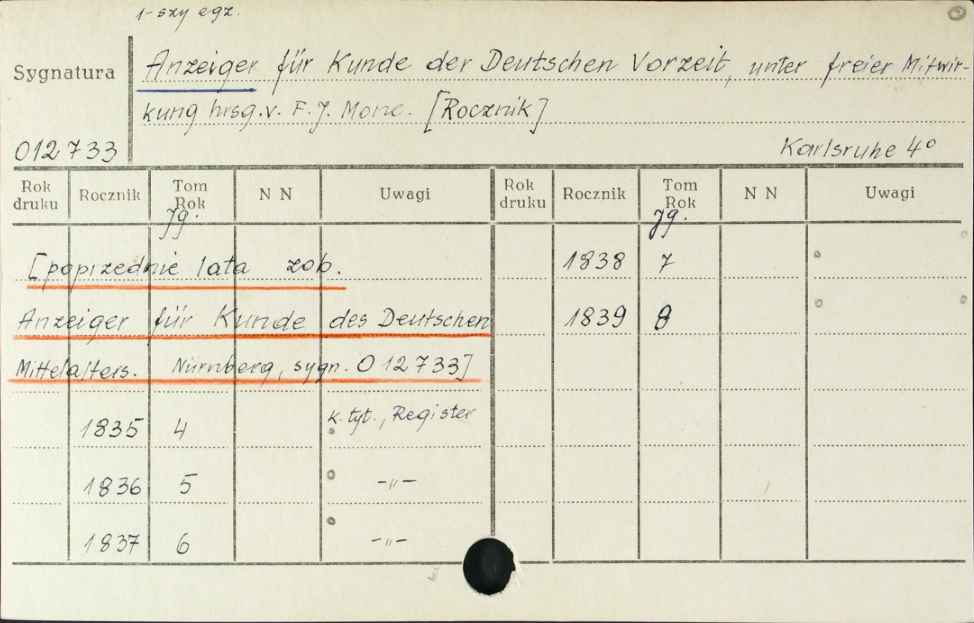 1-szy egz.
Sygnatura Anzeiger für Kunde der Deutschen Vorzeit, unter freier Mitwir-
kung hrsg. v. F. J. Mone. [Rocznik]
012733 Karlsruhe 4°
Rok druku Rocznik Tom Rok Jg. N N Uwagi Rok druku Rocznik Tom Rok Jg. N N Uwagi
[poprzednie lata zob. 1838 7
Anzeiger für Kunde des Deutschen 1839 8
Mittelalters. Nürnberg, sygn. O 12733]
1835 4 k. tyt., Register
1836 5 -"-
1837 6 -"-